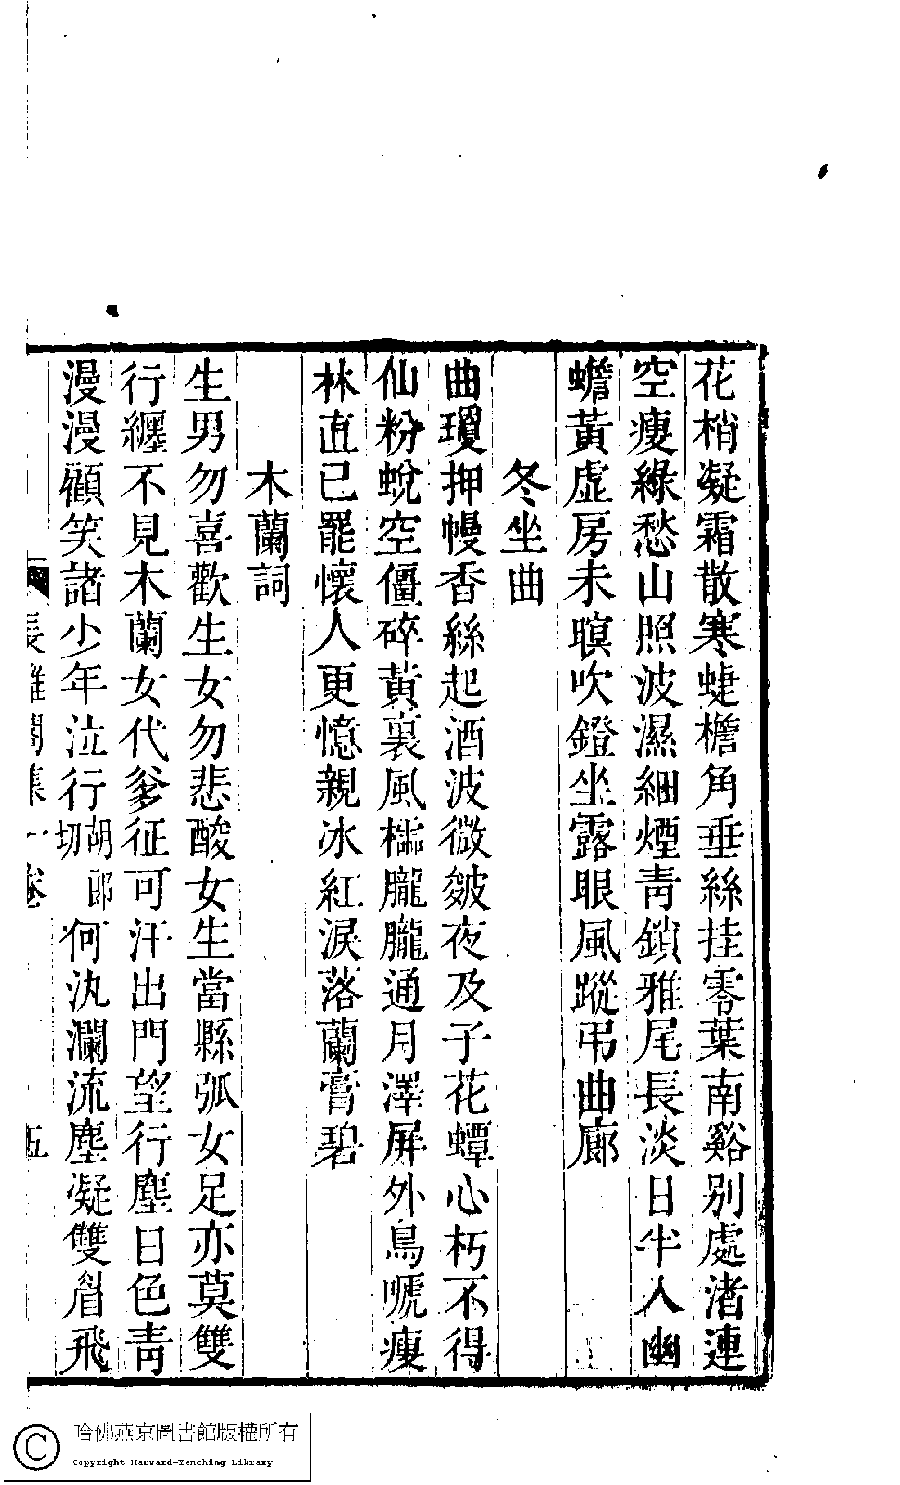 花梢凝霜散寒蜨檐角垂絲挂零葉南谿別處渚連
空瘦綠愁山照波濕細煙青鎖雅尾長淡日半人幽
蟾黃虛房未暝吹鐙坐露眼風蹤弔曲廊
冬坐曲
曲瓊押幔香絲起酒波微皴夜及子花蟫心朽不得
仙粉蛻空僵碎黃裏風櫺朧朧通月澤屏外鳥嗁瘦
林直已罷懷人更憶親冰紅淚落蘭膏碧
木蘭詞
生男勿喜歡生女勿悲酸女生當縣弧女足亦莫雙
行纏不見木蘭女代爹征可汗出門望行塵日色青
漫漫顧笑諸少年泣行胡郎切何汍瀾流塵凝雙眉飛
集一卷 五
哈佛燕京圖書館版權所有
Copyright Harvard-Yenching Library